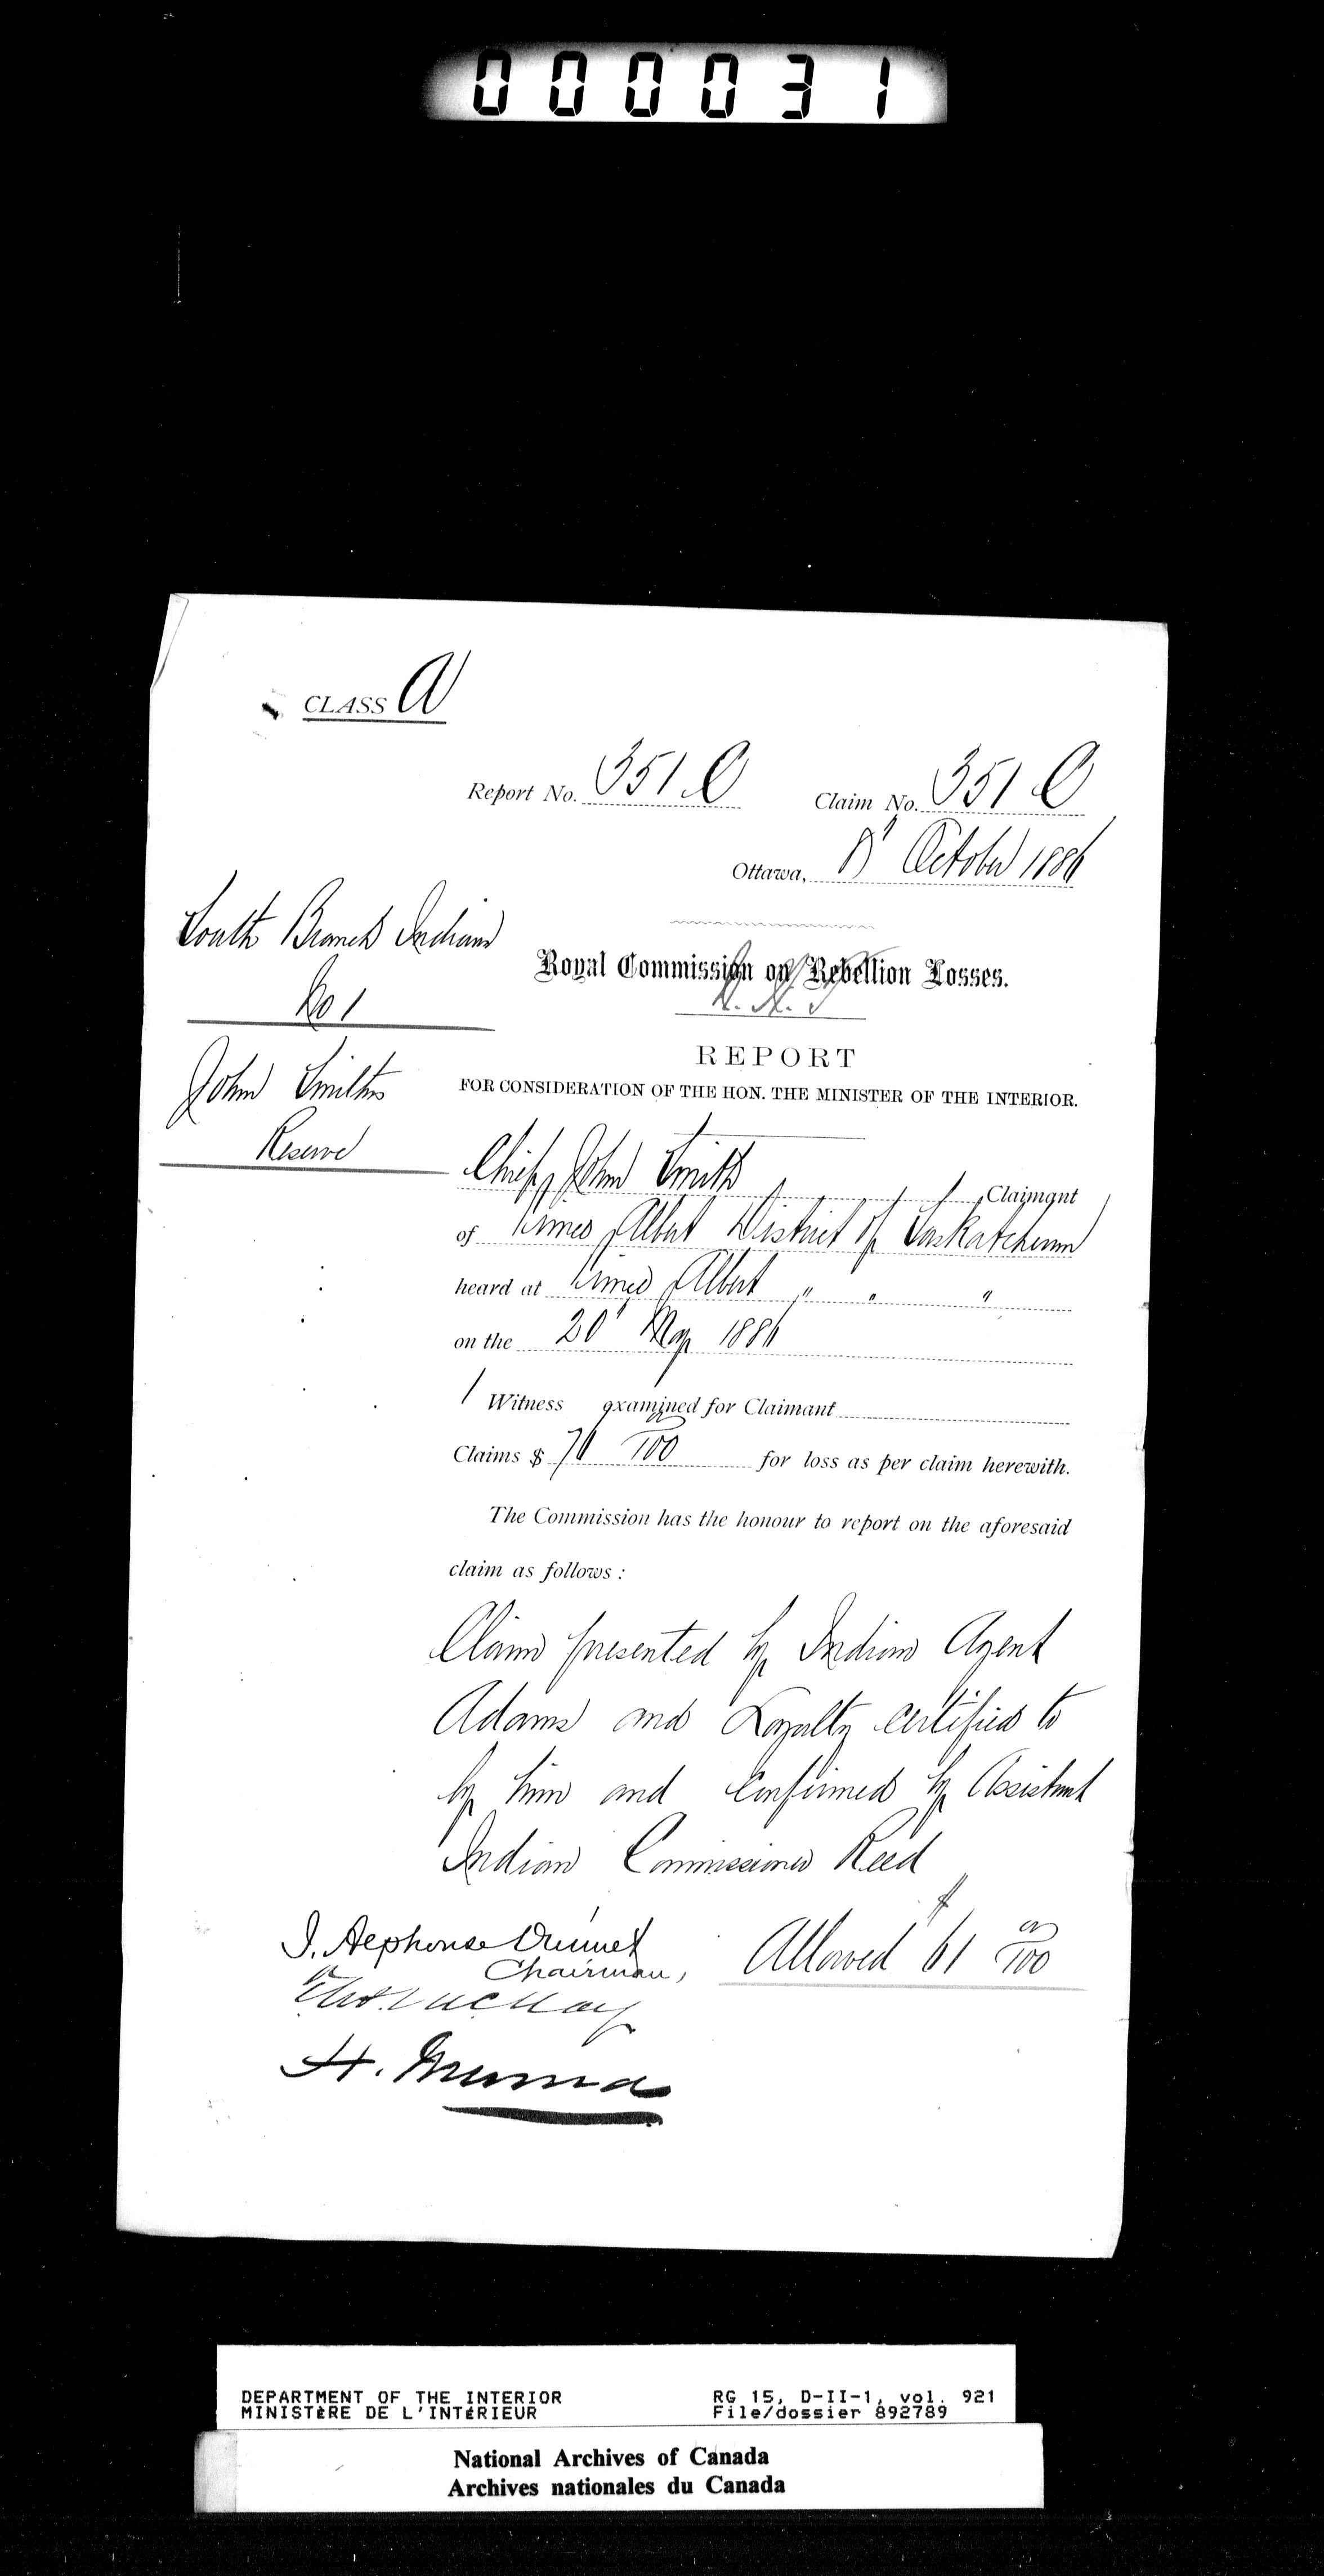 000031
CLASS A
Report No. 351 C Claim No. 351 C
Ottawa, October 1886
South Branch Indians
No 1
Royal Commission on Rebellion Losses.
John Smiths
Reserve
REPORT
FOR CONSIDERATION OF THE HON. THE MINISTER OF THE INTERIOR.
Chief John Smith Claimant
of Prince Albert District of Saskatchewan
heard at Prince Albert " " "
on the 20' May 1886
1 Witness examined for Claimant
Claims $ 100 for loss as per claim herewith.
The Commission has the honour to report on the aforesaid
claim as follows :
Claim presented by Indian Agent
Adams and Loyalty certified to
by him and confirmed by Assistant
Indian Commissioner Reed
J. Alphonse Ouimet
Chairman,
Allowed $ 61 00/100
H. Muma
DEPARTMENT OF THE INTERIOR RG 15, D-II-1, vol. 921
MINISTÈRE DE L'INTÉRIEUR File/dossier 892789
National Archives of Canada
Archives nationales du Canada